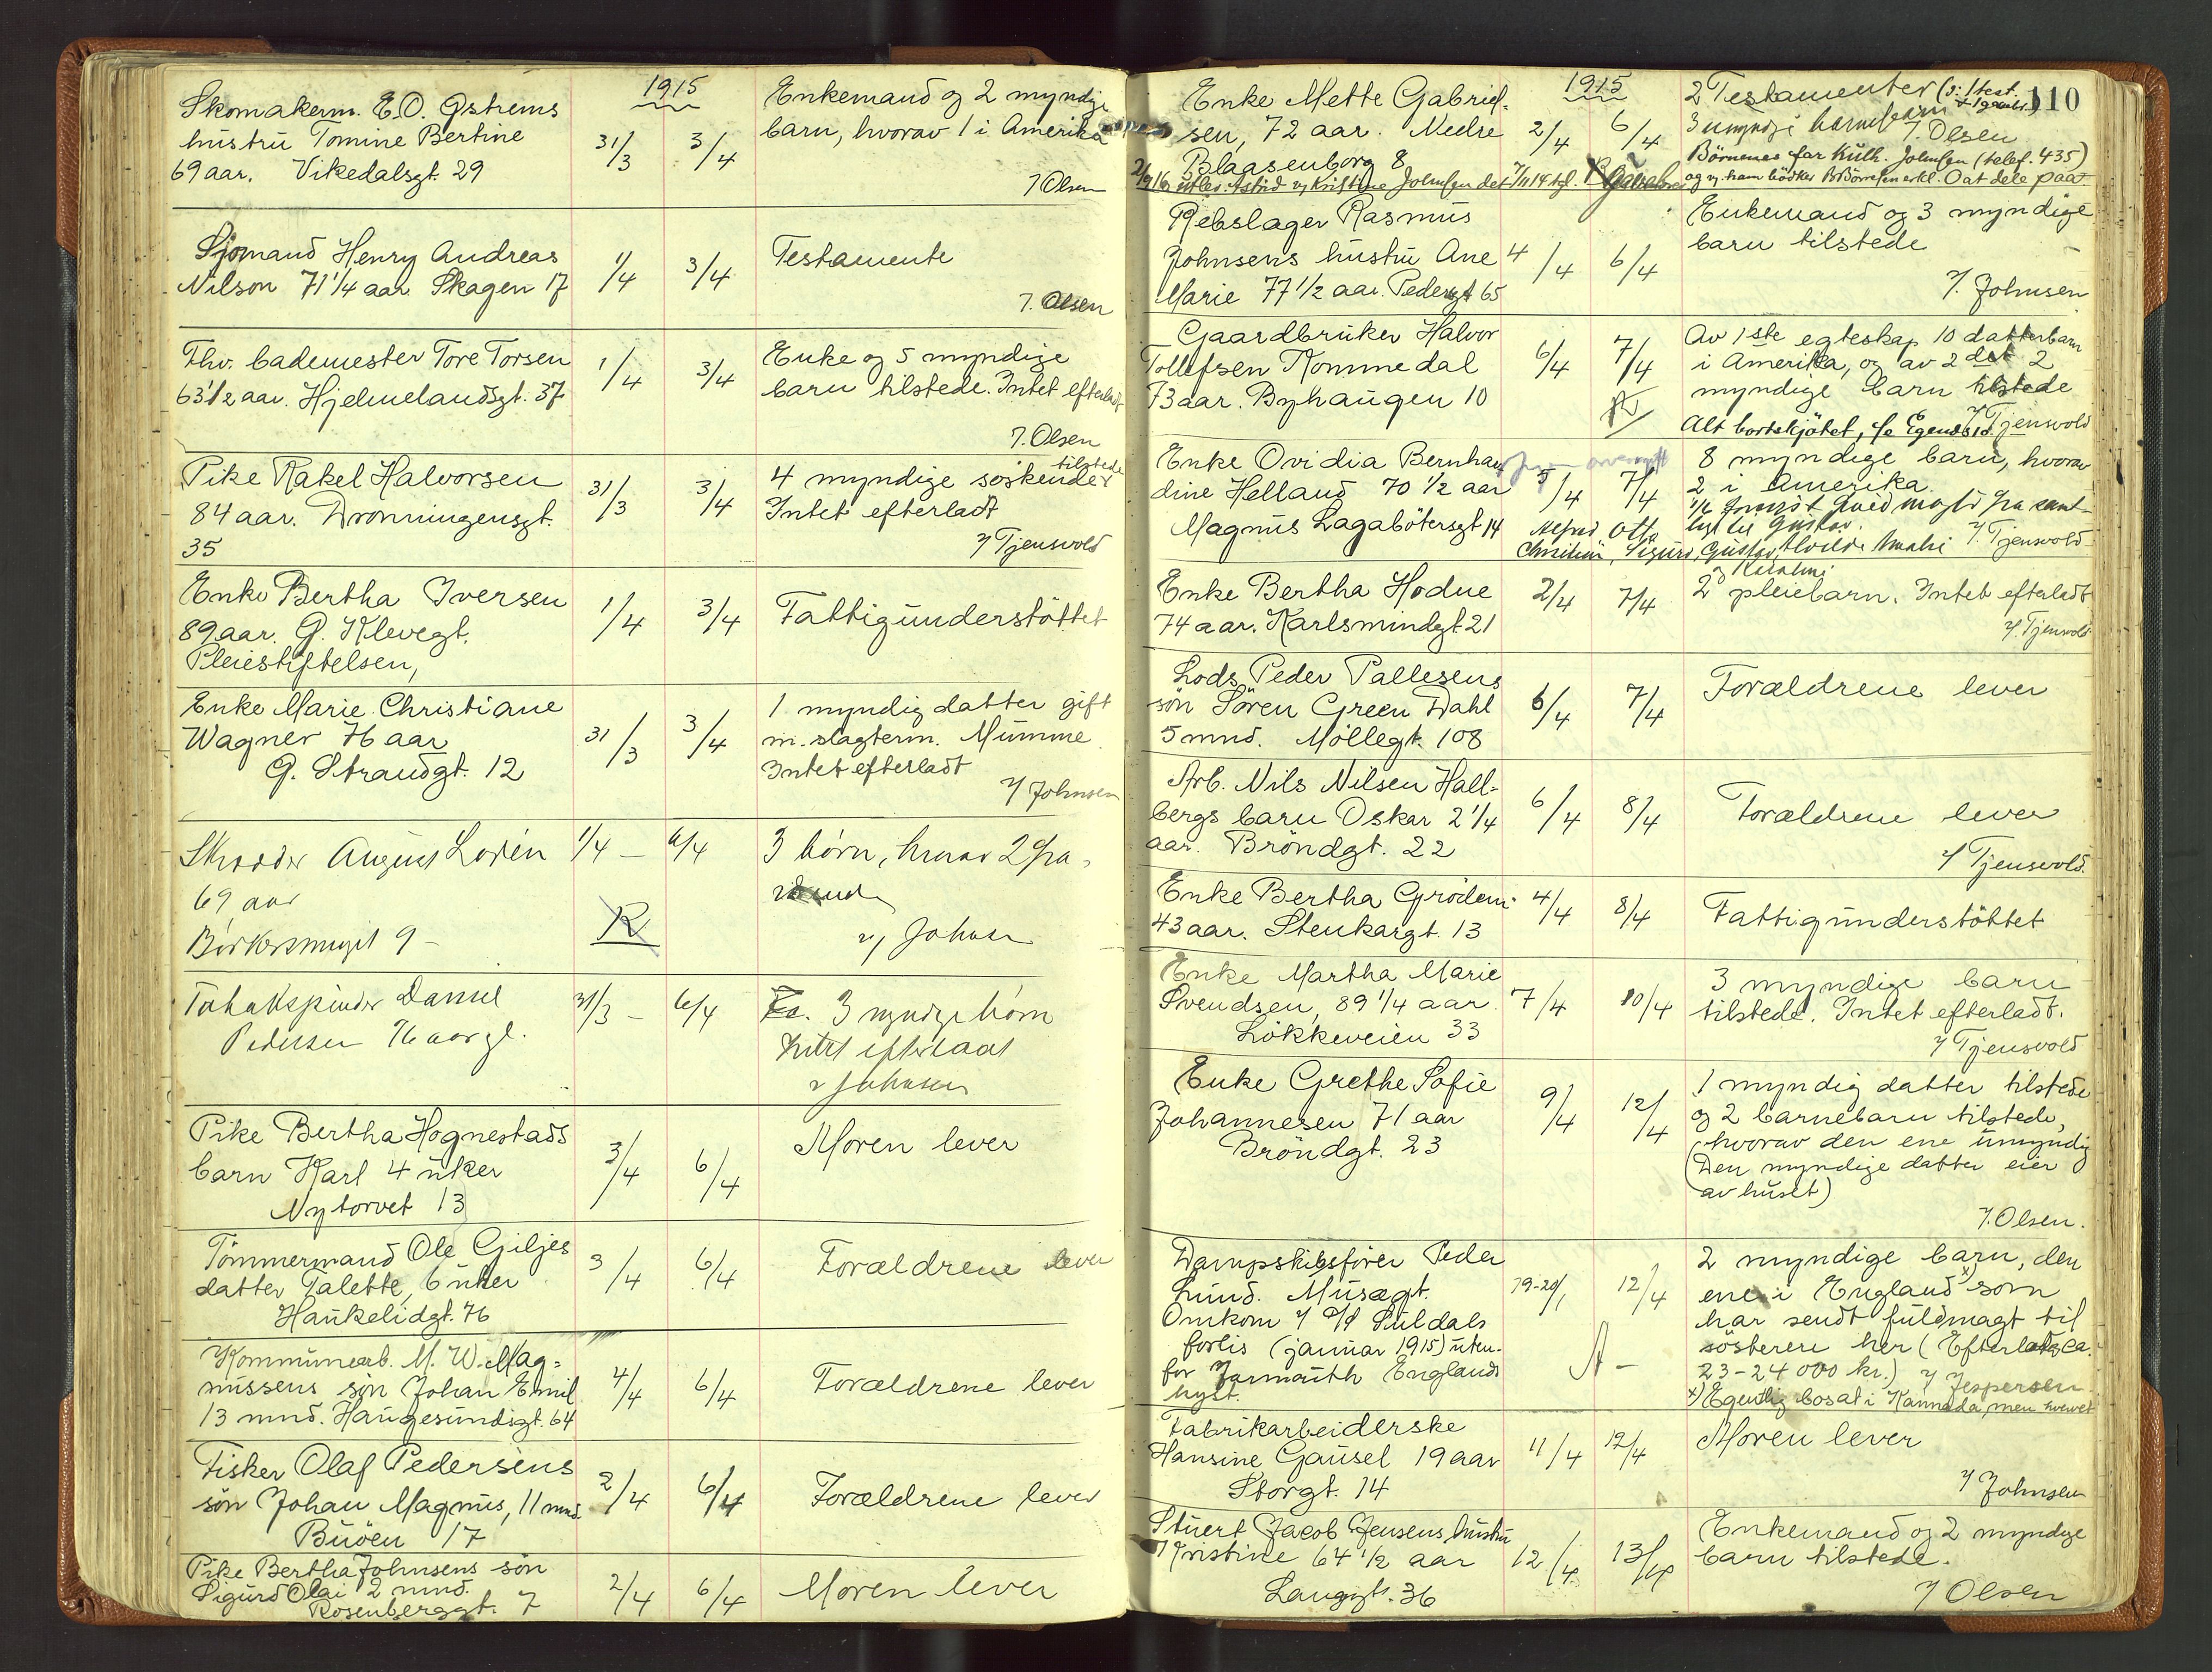 1915
Skomakerm. E.O. Østrems
hustru Tomine Bertine
69 aar. Vikedalsgt. 29
31/3
3/4
Enkemand og 2 myndige
barn, hvorav 1 i Amerika
J Olsen
Sjømand Henry Andreas
Nilson 71 1/4 aar. Skagen 17
1/4
3/4
Testamente
J. Olsen
Fhv. bademester Tore Torsen
63 1/2 aar. Hjelmelandsgt. 37
1/4
3/4
Enke og 5 myndige
barn tilstede. Intet efterladt
J. Olsen
Pike Rakel Halvorsen
84 aar. Dronningensgt.
35
31/3
3/4
4 myndige söskende tilstede
Intet efterladt
J Tjensvold
Enke Bertha Iversen
89 aar. G. Klevegt.
Pleiestiftelsen,
1/4
3/4
Fattigunderstöttet
Enke Marie Christiane
Wagner 76 aar
G. Strandgt. 12
31/3
3/4
1 myndig datter gift
m. slagterm. Mumme
Intet efterladt
J Johnsen
August
69 aar
9
1/4
6/4
R
3 börn, hvorav 2 fra-
J Johnsen
Daniel
Pedersen 76 aar gl.
31/3
6/4
3 myndige börn
Intet efterladt
J Johnsen
Pike Bertha Hognestads
barn Karl 4 uker
Nytorvet 13
3/4
6/4
Moren lever
Tömmermand Ole Giljes
datter Talette, 6 uker
Haukelidgt. 76
3/4
6/4
Forældrene lever
Kommunearb. M. W. Mag=
nussens sön Johan Emil
13 mnd. Haugesundsgt. 64
4/4
6/4
Forældrene lever
Fisker Olaf Pedersens
sön Johan Magnus, 11 mnd.
Buöen 17
2/4
6/4
Forældrene lever
Pike Bertha Johnsens sön
Sigurd Olai 2 mnd.
Rosenberggt. 7
2/4
6/4
Moren lever
1915
110
Enke Mette Gabriel-
sen, 72 aar. Nedre
Blaasenborg 8
2/4
6/4
2 Testamenter (o: 1 test.
3 umyndige barnebarn
J. Olsen
Börnenes far Kuth. Johnsen (telef. 435)
Rebslager Rasmus
Johnsens hustru Ane
Marie 77 1/2 aar. Pedersgt 65
4/4
6/4
Enkemand og 3 myndige
barn tilstede
J. Johnsen
Gaardbruker Halvor
Tollefsen Kommedal
73 aar. Byhaugen 10
6/4
7/4
Av 1ste egteskap 10 datterbarn
i Amerika, og av 2det 2
myndige barn tilstede
J Tjensvold
Alt bortskjötet,
Enke Ovidia Bernhar
dine Helland 70 1/2 aar
Magnus Lagabötersgt 14
5/4
7/4
8 myndige barn, hvorav
2 i Amerika.
J. Tjensvold
Enke Bertha Hodne
74 aar. Karlsmindegt. 21
2/4
7/4
2 pleiebarn. Intet efterladt
J. Tjensvold
Lods Peder Pallesens
sön Sören Green Dahl
5 mnd. Möllegt. 108
6/4
7/4
Forældrene lever
Arb. Nils Nilsen Hall-
bergs barn Oskar 2 1/4
aar. Bröndgt. 22
6/4
8/4
Forældrene lever
J Tjensvold.
Enke Bertha Grödem
43 aar. Stenkargt. 13
4/4
8/4
Fattigunderstöttet
Enke Martha Marie
Svendsen, 89 1/4 aar
Lökkeveien 33
7/4
10/4
3 myndige barn
tilstede. Intet efterladt.
J Tjensvold
Enke Grethe Sofie
Johannesen 71 aar
Bröndgt. 23
9/4
12/4
1 myndig datter tilstede
og 2 barnebarn tilstede,
hvorav den ene umyndig
(Den myndige datter eier
av huset)
J. Olsen.
Dampskibsförer Peder
Lund. Musægt.
Omkom v/ D/S Suldals
forlis (januar 1915) uten-
for Yarmouth Englands
kyst.
19-20/1
12/4
2 myndige barn, den
ene i England x) som
har sendt fuldmagt til
sösteren her (Efterladt ca.
23-24 000 kr.) J Jespersen
x) Egentlig bosat i Kannada, men hvervet
Fabrikarbeiderske
Hansine Gausel 19 aar
Storgt. 14
11/4
12/4
Moren lever
J Johnsen
Stuert Jacob Jensens hustru
Kristine 64 1/2 aar
Langgt. 36
12/4
13/4
Enkemand og 2 myndige
barn tilstede.
J Olsen